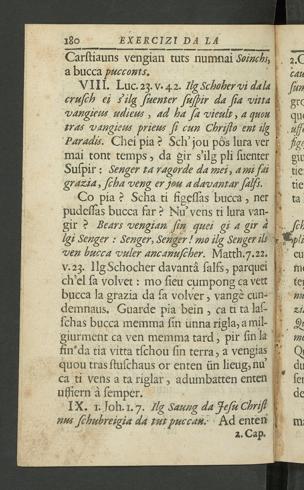 180 EXERCIZI DA LA
Carſtiauns vengian tuts numnai Soinchs,
a bucca pucconts.
VIII. Luc. 23. v. 42. Ilg Schoher vi da la
cruſch ei s'ilg ſuenter ſuſpir da ſia vitta
vangieus udieus, ad ha ſa vieult, a quou
tras vangieus prieus ſi cun Chriſto ent ilg
Paradis. Chei pia? Sch' jou pôs lura ver
mai tont temps, da gir s'ilg pli ſuenter
Suſpir: Senger ta ragorde da mei, a mi fai
grazia, ſcha veng er jou a davantar ſalſs.
Co pia? Scha ti figeſſas bucca, ner
pudeſſas bucca far? Nu' vens ti lura van-
gir? Bears vengian ſin quei gi a gir à
lgi Senger: Senger, Senger! mo ilg Senger ils
ven bucca vuler ancanuſcher. Matth. 7. 22.
v. 23. Ilg Schocher davantà ſalſs, parquei
ch'el ſa volvet: mo ſieu cumpong ca vett
bucca la grazia da ſa volver, vangè cun-
demnaus. Guarde pia bein, ca ti ta laſ-
ſchas bucca memma ſin unna rigla; a mil-
giurment ca ven memma tard, pir ſin la
fin da tia vitta tſchou ſin terra, a vengias
quou tras ſtuſchaus or enten ün lieug, nu'
ca ti vens a ta riglar, adumbatten enten
uffiern à ſemper.
IX. 1. Joh. 1. 7. Ilg Saung da Jeſu Chriſt
nus ſchubreigia da tut puccau. Ad enten
2. Cap.